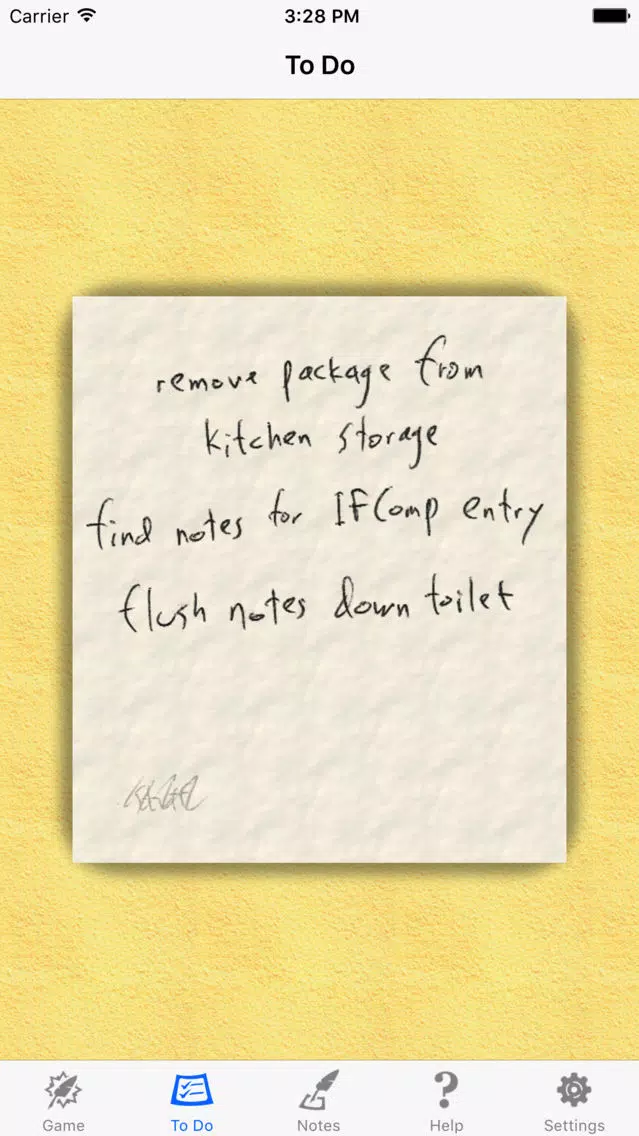 Carrier 3:28 PM
To Do
remove package from
kitchen storage
find notes for IFComp entry
flush notes down toilet
Game To Do Notes Help Settings